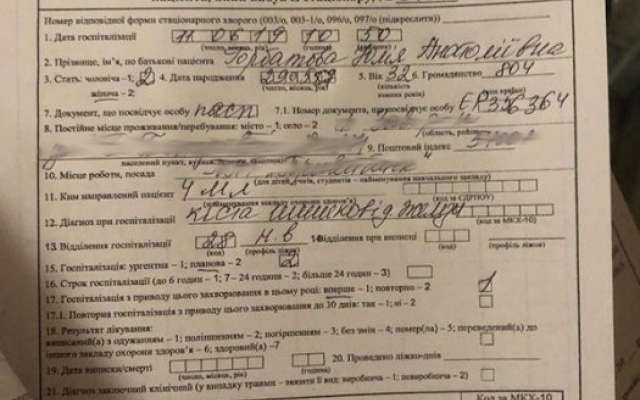 Номер відповідної форми стаціонарного хворого (003/о, 003-1/о, 096/о, 097/о (підкреслити))
1. Дата госпіталізації 11 06 19 10 50
(число, місяць, рік) (година)
2. Прізвище, ім'я, по батькові пацієнта Горбатова Юлія Анатоліївна
3. Стать: чоловіча – 1; 2 4. Дата народження 5. Вік 32 6. Громадянство 804
жіноча – 2 (число, місяць, рік) (кількість повних років)
7. Документ, що посвідчує особу пасп 7.1. Номер документа, що посвідчує особу ЕР356364
8. Постійне місце проживання/перебування: місто – 1; село – 2
9. Поштовий індекс
населений пункт
10. Місце роботи, посада
(для дітей, учнів, студентів – найменування навчального закладу)
11. Ким направлений пацієнт 4 МЛ
(код за ЄДРПОУ)
12. Діагноз при госпіталізації кіста
(код за МКХ-10)
13 Відділення госпіталізації 28 Н.В 14 Відділення при виписці
(код) (профіль ліжок) (код) (профіль ліжок)
15. Госпіталізація: ургентна – 1; планова – 2 2
16. Строк госпіталізації (до 6 годин – 1; 7 – 24 години – 2; більше 24 годин – 3)
17. Госпіталізація з приводу цього захворювання в цьому році: вперше – 1; повторно – 2 1
17.1. Повторна госпіталізація з приводу цього захворювання до 30 днів: так – 1; ні – 2
18. Результат лікування:
виписаний(а) з одужанням – 1; поліпшенням – 2; погіршенням – 3; без змін – 4; помер(ла) – 5; переведений(а) до
іншого закладу охорони здоров'я – 6; здоровий(а) –7
19. Дата виписки/смерті 20. Проведено ліжко-днів
(число, місяць, рік) (година)
21. Діагноз заключний клінічний (у випадку травми – вказати її вид: виробнича – 1; невиробнича – 2)
Код за МКХ-10